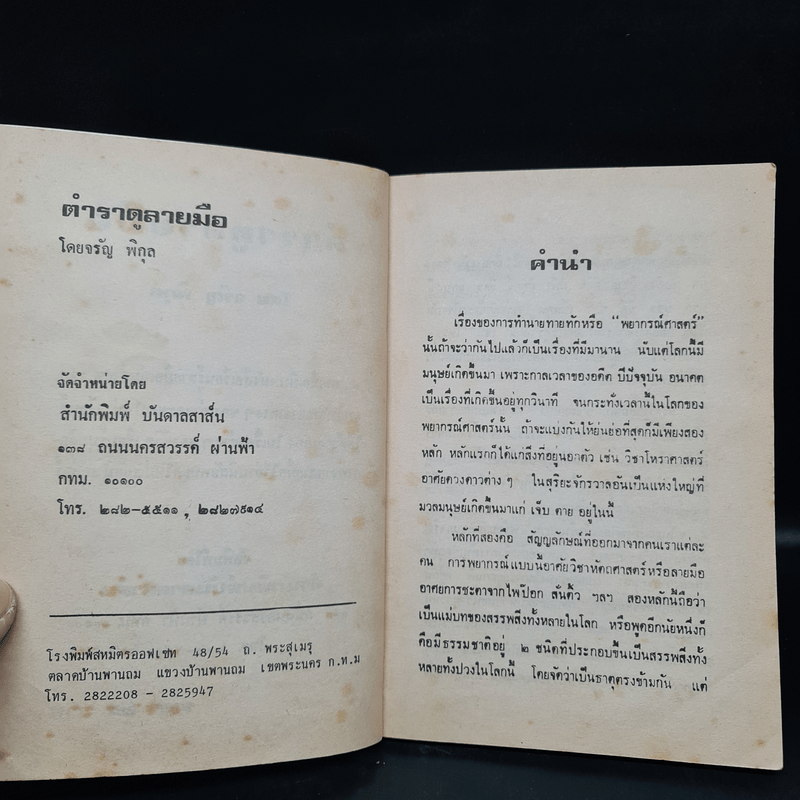 ตำราดูลายมือ
โดยจรัญ พิกุล
จัดจำหน่ายโดย
สำนักพิมพ์ บันดาลสาส์น
๑๓๘ ถนนนครสวรรค์ ผ่านฟ้า
กทม. ๑๐๑๐๐
โทร. ๒๘๒-๕๕๑๑ , ๒๘๒๗๙๑๔
โรงพิมพ์สหมิตรออฟเซท 48/54 ถ. พระสุเมรุ
ตลาดบ้านพานถม แขวงบ้านพานถม เขตพระนคร ก.ท.ม
โทร. 2822208 - 2825947
คำนำ
เรื่องของการทำนายทายทักหรือ "พยากรณ์ศาสตร์"
นั้นถ้าจะว่ากันไปแล้วก็เป็นเรื่องที่มีมานาน นับแต่โลกนี้มี
มนุษย์เกิดขึ้นมา เพราะกาลเวลาของอดีต ปีปัจจุบัน อนาคต
เป็นเรื่องที่เกิดขึ้นอยู่ทุกวินาที จนกระทั่งเวลานี้ในโลกของ
พยากรณ์ศาสตร์นั้น ถ้าจะแบ่งกันให้ย่นย่อที่สุดก็มีเพียงสอง
หลัก หลักแรกก็ได้แก่สิ่งที่อยู่นอกตัว เช่น วิชาโหราศาสตร์
อาศัยดวงดาวต่าง ๆ ในสุริยะจักรวาลอันเป็นแห่งใหญ่ที่
มวลมนุษย์เกิดขึ้นมาแก่ เจ็บ ตาย อยู่ในนี้
หลักที่สองคือ สัญญลักษณ์ที่ออกมาจากคนเราแต่ละ
คน การพยากรณ์แบบนี้อาศัยวิชาหัตถศาสตร์หรือลายมือ
อาศัยการชะตาจากไพ่ป๊อก สั่นติ้ว ฯลฯ สองหลักนี้ถือว่า
เป็นแม่บทของสรรพสิ่งทั้งหลายในโลก หรือพูดอีกนัยหนึ่งก็
คือมีธรรมชาติอยู่ ๒ ชนิดที่ประกอบขึ้นเป็นสรรพสิ่งทั้ง
หลายทั้งปวงในโลกนี้ โดยจัดว่าเป็นธาตุตรงข้ามกัน แต่